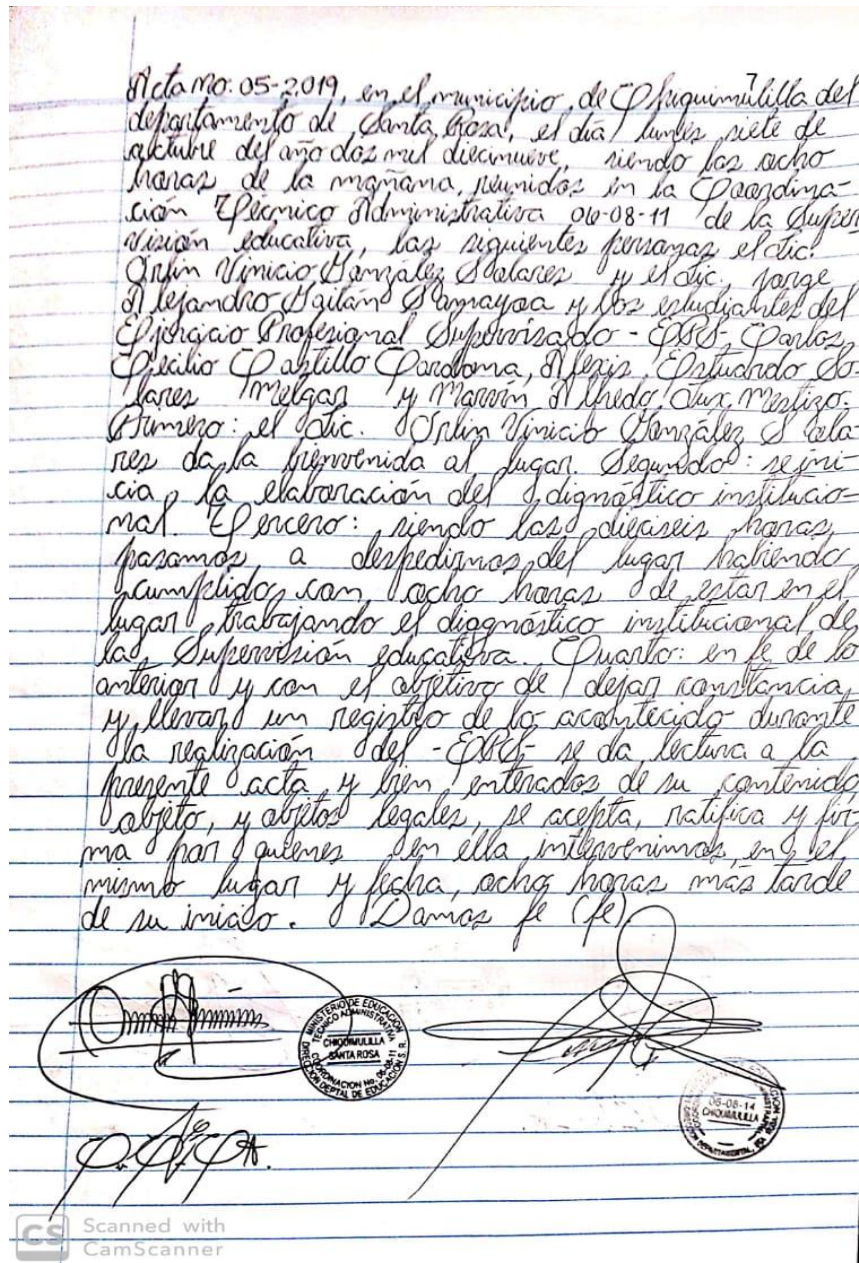 7
Acta no. 05-2,019, en el municipio de Chiquimulilla del
departamento de Santa Rosa, el día lunes siete de
octubre del año dos mil diecinueve, siendo las ocho
horas de la mañana, reunidos en la Coordina-
ción Técnico Administrativa 06-08-11 de la Super
visión educativa, las siguientes personas el Lic.
Orlin Vinicio González Solares y el Lic. Jorge
Alejandro Gaitán Samayoa y los estudiantes del
Ejercicio Profesional Supervisado -EPS- Carlos
Cecilio Castillo Cardona, Alexis Estuardo So-
lares Melgar y Marvin Alfredo Tux Mestizo.
Primero: el Lic. Orlin Vinicio González Sola-
res da la bienvenida al lugar. Segundo: se ini-
cia la elaboración del dignóstico institucio-
nal. Tercero: siendo las dieciseis horas,
pasamos a despedirnos del lugar habiendo
cumplido con ocho horas de estar en el
lugar trabajando el diagnóstico institucional de
la Supervisión educativa. Cuarto: en fe de lo
anterior y con el objetivo de dejar constancia
y llevar un registro de lo acontecido durante
la realización del -EPS- se da lectura a la
presente acta y bien enterados de su contenido,
objeto, y objetos legales, se acepta, ratifica y fir-
ma por quienes en ella intervenimos, en el
mismo lugar y fecha, ocho horas más tarde
de su inicio. Damos fe (fe)
MINISTERIO DE EDUCACIÓN
TECNICO ADMINISTRATIVA
CHIQUIMULILLA
SANTA ROSA
COORDINACION No. 06-08-11
DIRECCION DEPTAL DE EDUCACIÓN S. R.
06-08-14
CHIQUIMULILLA
CS Scanned with
CamScanner